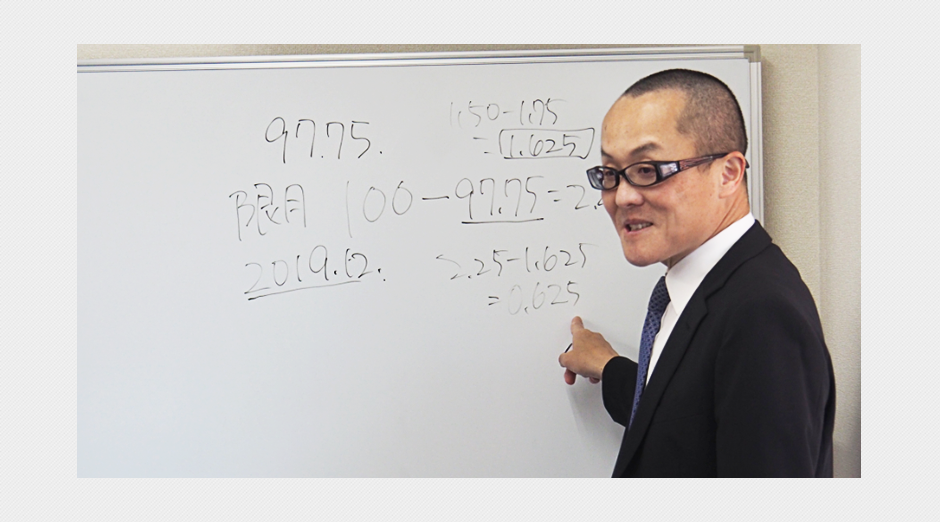 97.75.
1.50-1.75
=1.625
限月 100-97.75=2.
2019.12.
2.25-1.625
=0.625